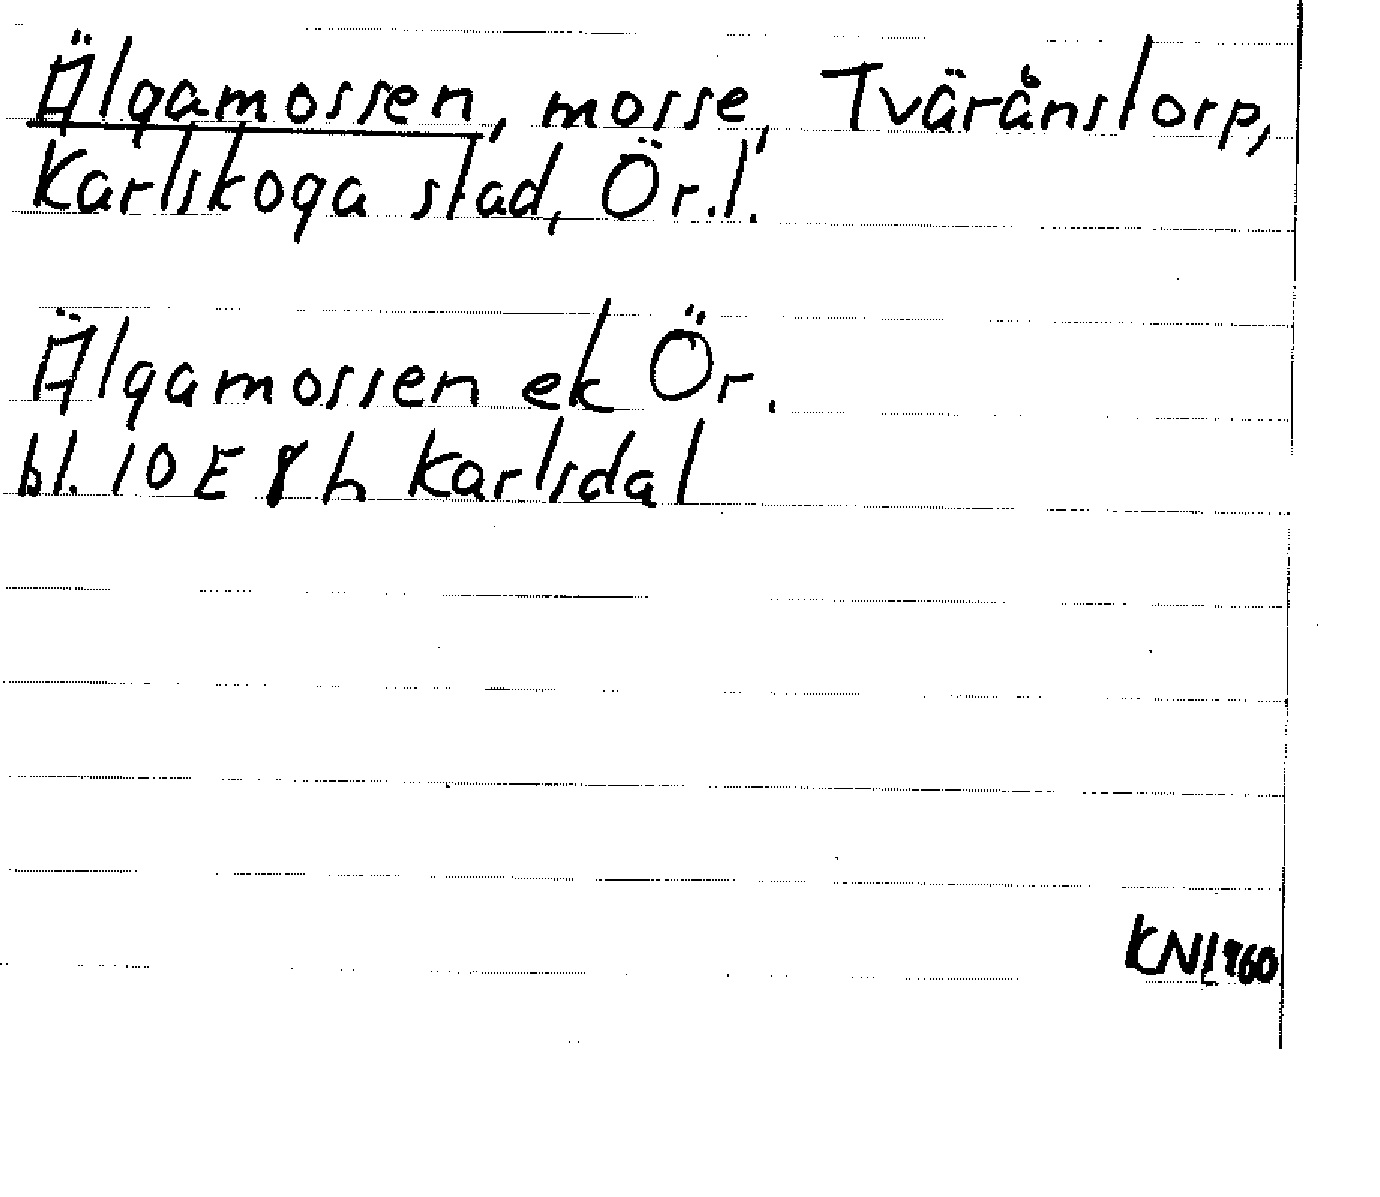 Älgamossen, mosse, Tvärånstorp,
Karlskoga stad, Ör.l.
Älgamossen ek Ör.
bl. 10 E 8 h Karlsdal